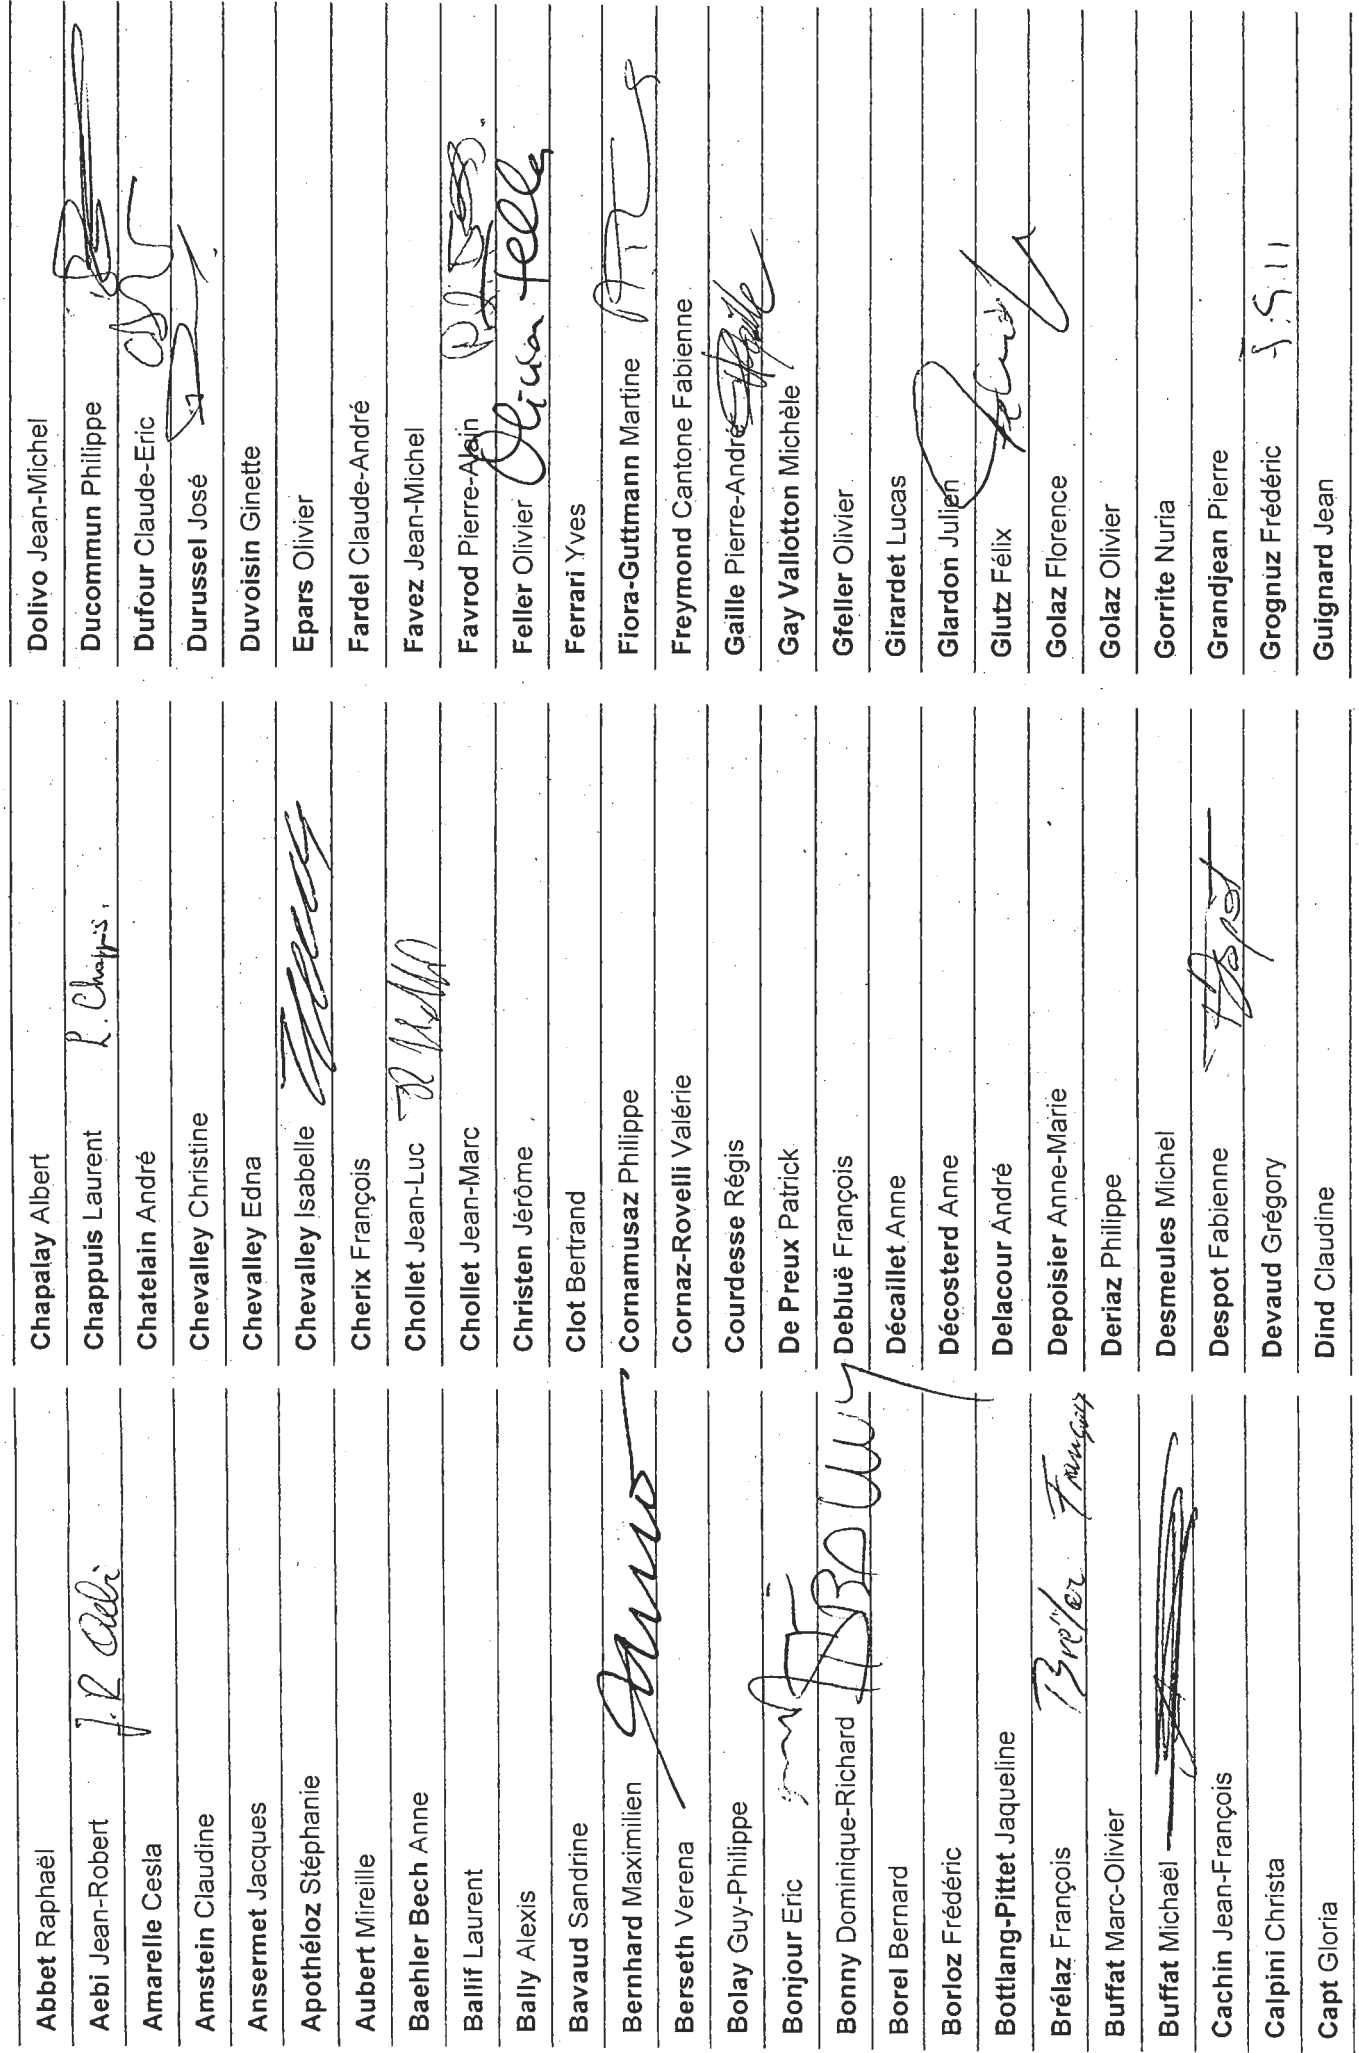 Abbet Raphaël
Aebi Jean-Robert J. R Aebi
Amarelle Cesla
Amstein Claudine
Ansermet Jacques
Apothéloz Stéphanie
Aubert Mireille
Baehler Bech Anne
Ballif Laurent
Bally Alexis
Bavaud Sandrine
Bernhard Maximilien
Berseth Verena
Bolay Guy-Philippe
Bonjour Eric
Bonny Dominique-Richard
Borel Bernard
Borloz Frédéric
Bottlang-Pittet Jaqueline
Brélaz François Brélaz François
Buffat Marc-Olivier
Buffat Michaël
Cachin Jean-François
Calpini Christa
Capt Gloria
Chapalay Albert
Chappuis Laurent L. Chappuis.
Chatelain André
Chevalley Christine
Chevalley Edna
Chevalley Isabelle
Cherix François
Chollet Jean-Luc
Chollet Jean-Marc
Christen Jérôme
Clot Bertrand
Cornamusaz Philippe
Cornaz-Rovelli Valérie
Courdesse Régis
De Preux Patrick
Debluë François
Décaillet Anne
Décosterd Anne
Delacour André
Depoisier Anne-Marie
Deriaz Philippe
Desmeules Michel
Despot Fabienne
Devaud Grégory
Dind Claudine
Dolivo Jean-Michel
Ducommun Philippe
Dufour Claude-Eric
Durussel José
Duvoisin Ginette
Epars Olivier
Fardel Claude-André
Favez Jean-Michel
Favrod Pierre-Alain
Feller Olivier Olivier Feller
Ferrari Yves
Fiora-Guttmann Martine
Freymond Cantone Fabienne
Gaille Pierre-André
Gay Vallotton Michèle
Gfeller Olivier
Girardet Lucas
Glardon Julien
Glutz Félix
Golaz Florence
Golaz Olivier
Gorrite Nuria
Grandjean Pierre
Grognuz Frédéric
Guignard Jean